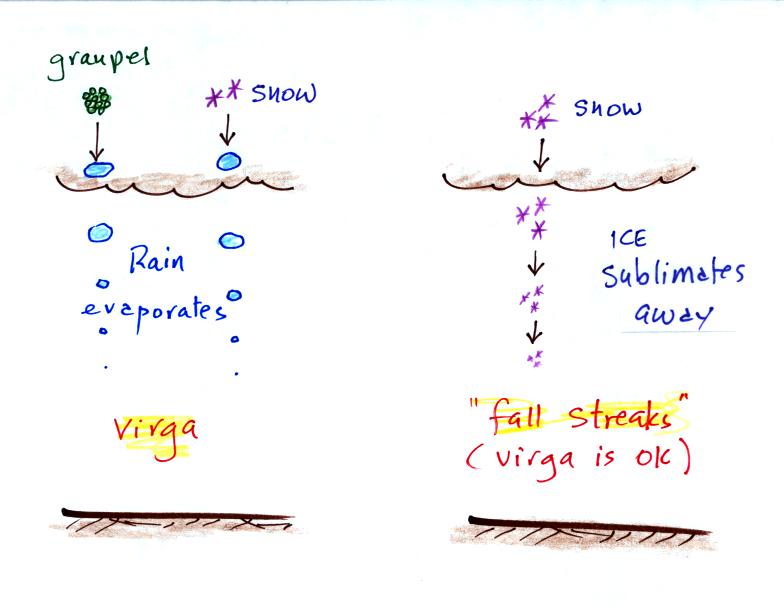 graupel
snow
Rain
evaporates
virga
snow
ICE
sublimates
away
"fall streaks"
(virga is ok)